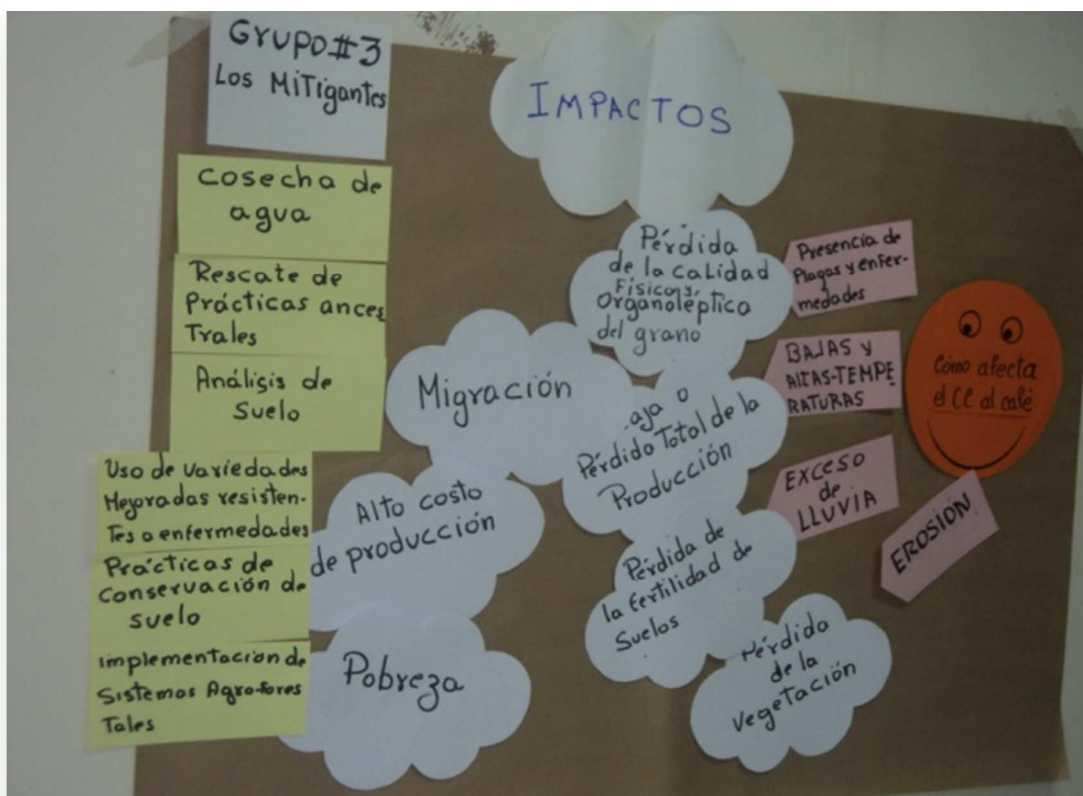 Grupo #3
Los Mitigantes
cosecha de
agua
Rescate de
Prácticas ances
Trales
Análisis de
suelo
Uso de variedades
Mejoradas resisten-
Tes a enfermedades
Prácticas de
conservación de
suelo
implementación de
Sistemas Agro-fores
Tales
IMPACTOS
Pérdida
de la calidad
Física y
organoléptica
del grano
Migración
aja o
Pérdida Total de la
Producción
Alto costo
de producción
Pérdida de
la fertilidad de
Suelos
Pobreza
Pérdida
de la
vegetación
Presencia de
Plagas y enfer-
medades
BAJAS y
AlTAS-TEMPE
RATURAS
EXCESO
de
LLUVIA
EROSIÓN
Cómo afecta
el CC al café